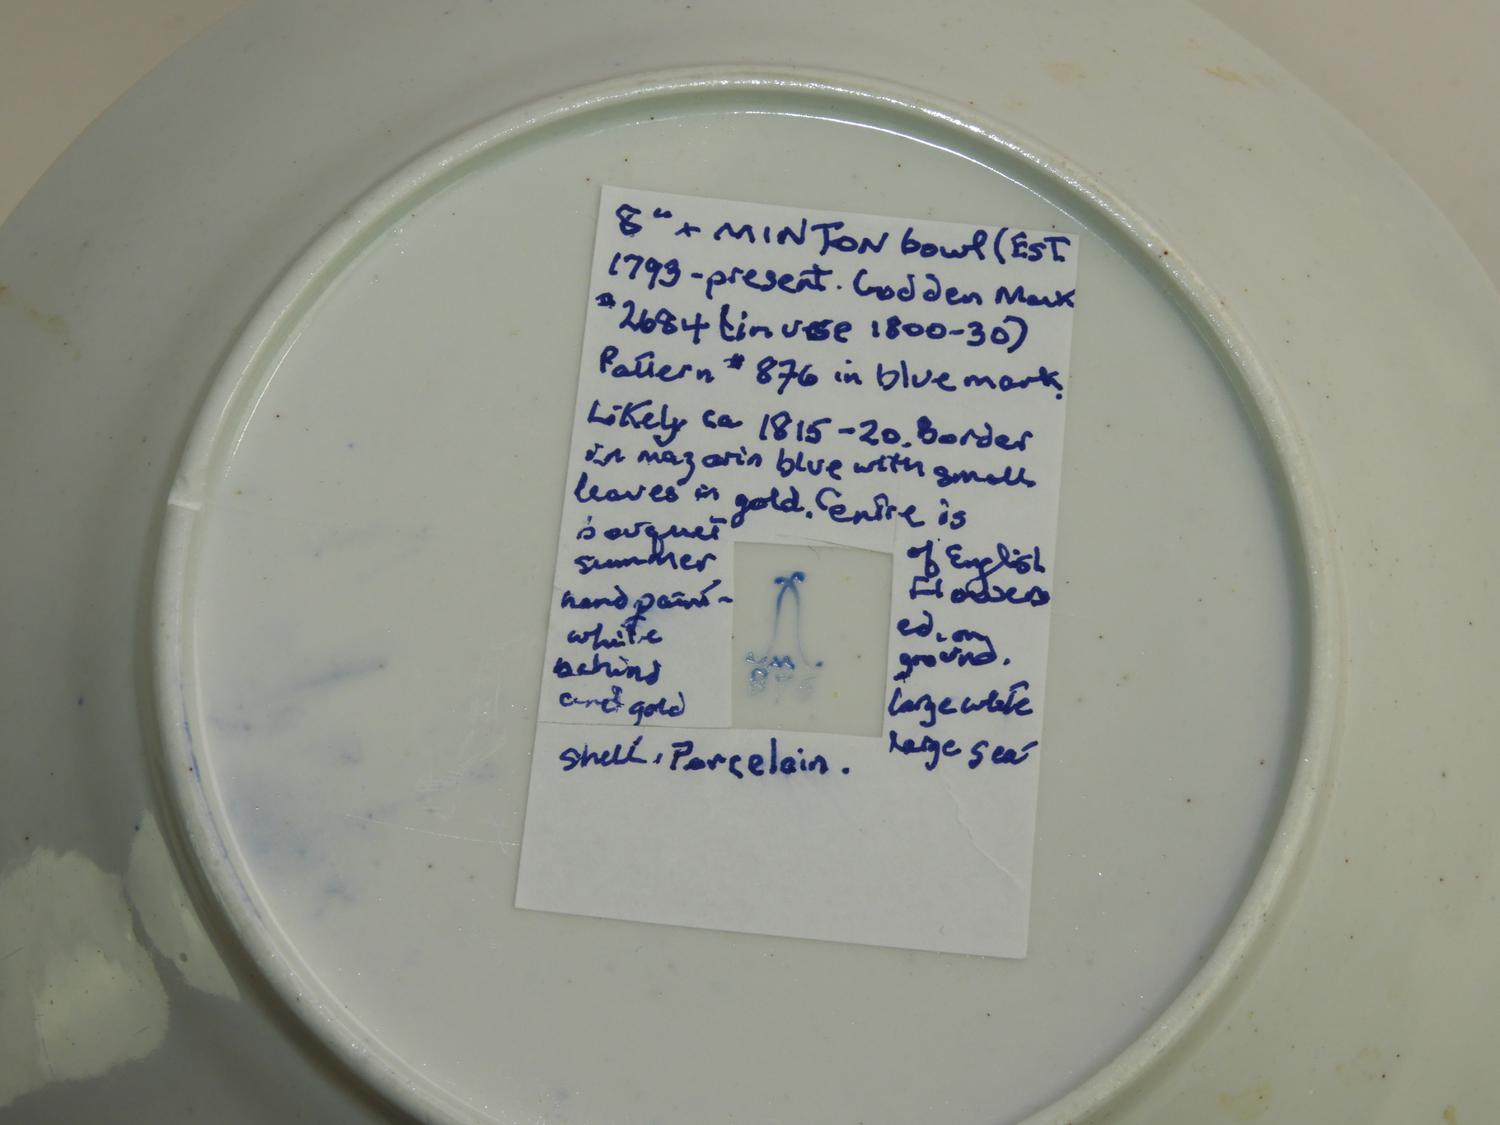 8"+ MINTON bowl (EST.
1793-present. Godden Mark
#2684 (in use 1800-30)
Pattern #876 in blue mark.
Likely ca 1815-20. Border
in mazarin blue with small
leaves in gold. Centre is
bouquet of English
summer Flowers
handpaint- ed, on
white ground.
behind large white
and gold large sea-
shell. Porcelain.
M